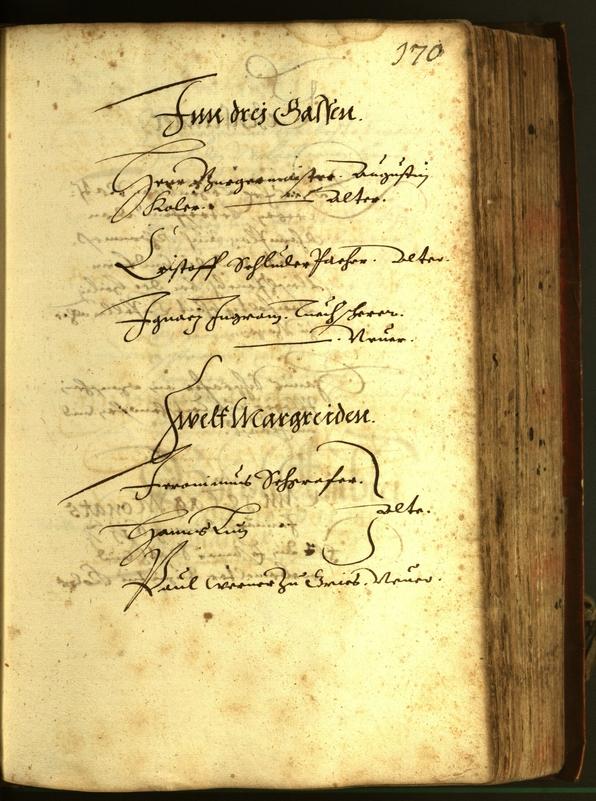 170
Inn drei Gassen.
Herr Burgermaister. Augustin
Koler. Alter.
Cristoff Schluderpacher. Alter.
Ignaci Ingram. Tuechscherer.
Neuer.
Zwelf Margreiden.
Jeronimus Scherefer.
Hanns Luz
Alte.
Paul Werner zu Gries. Neuer.